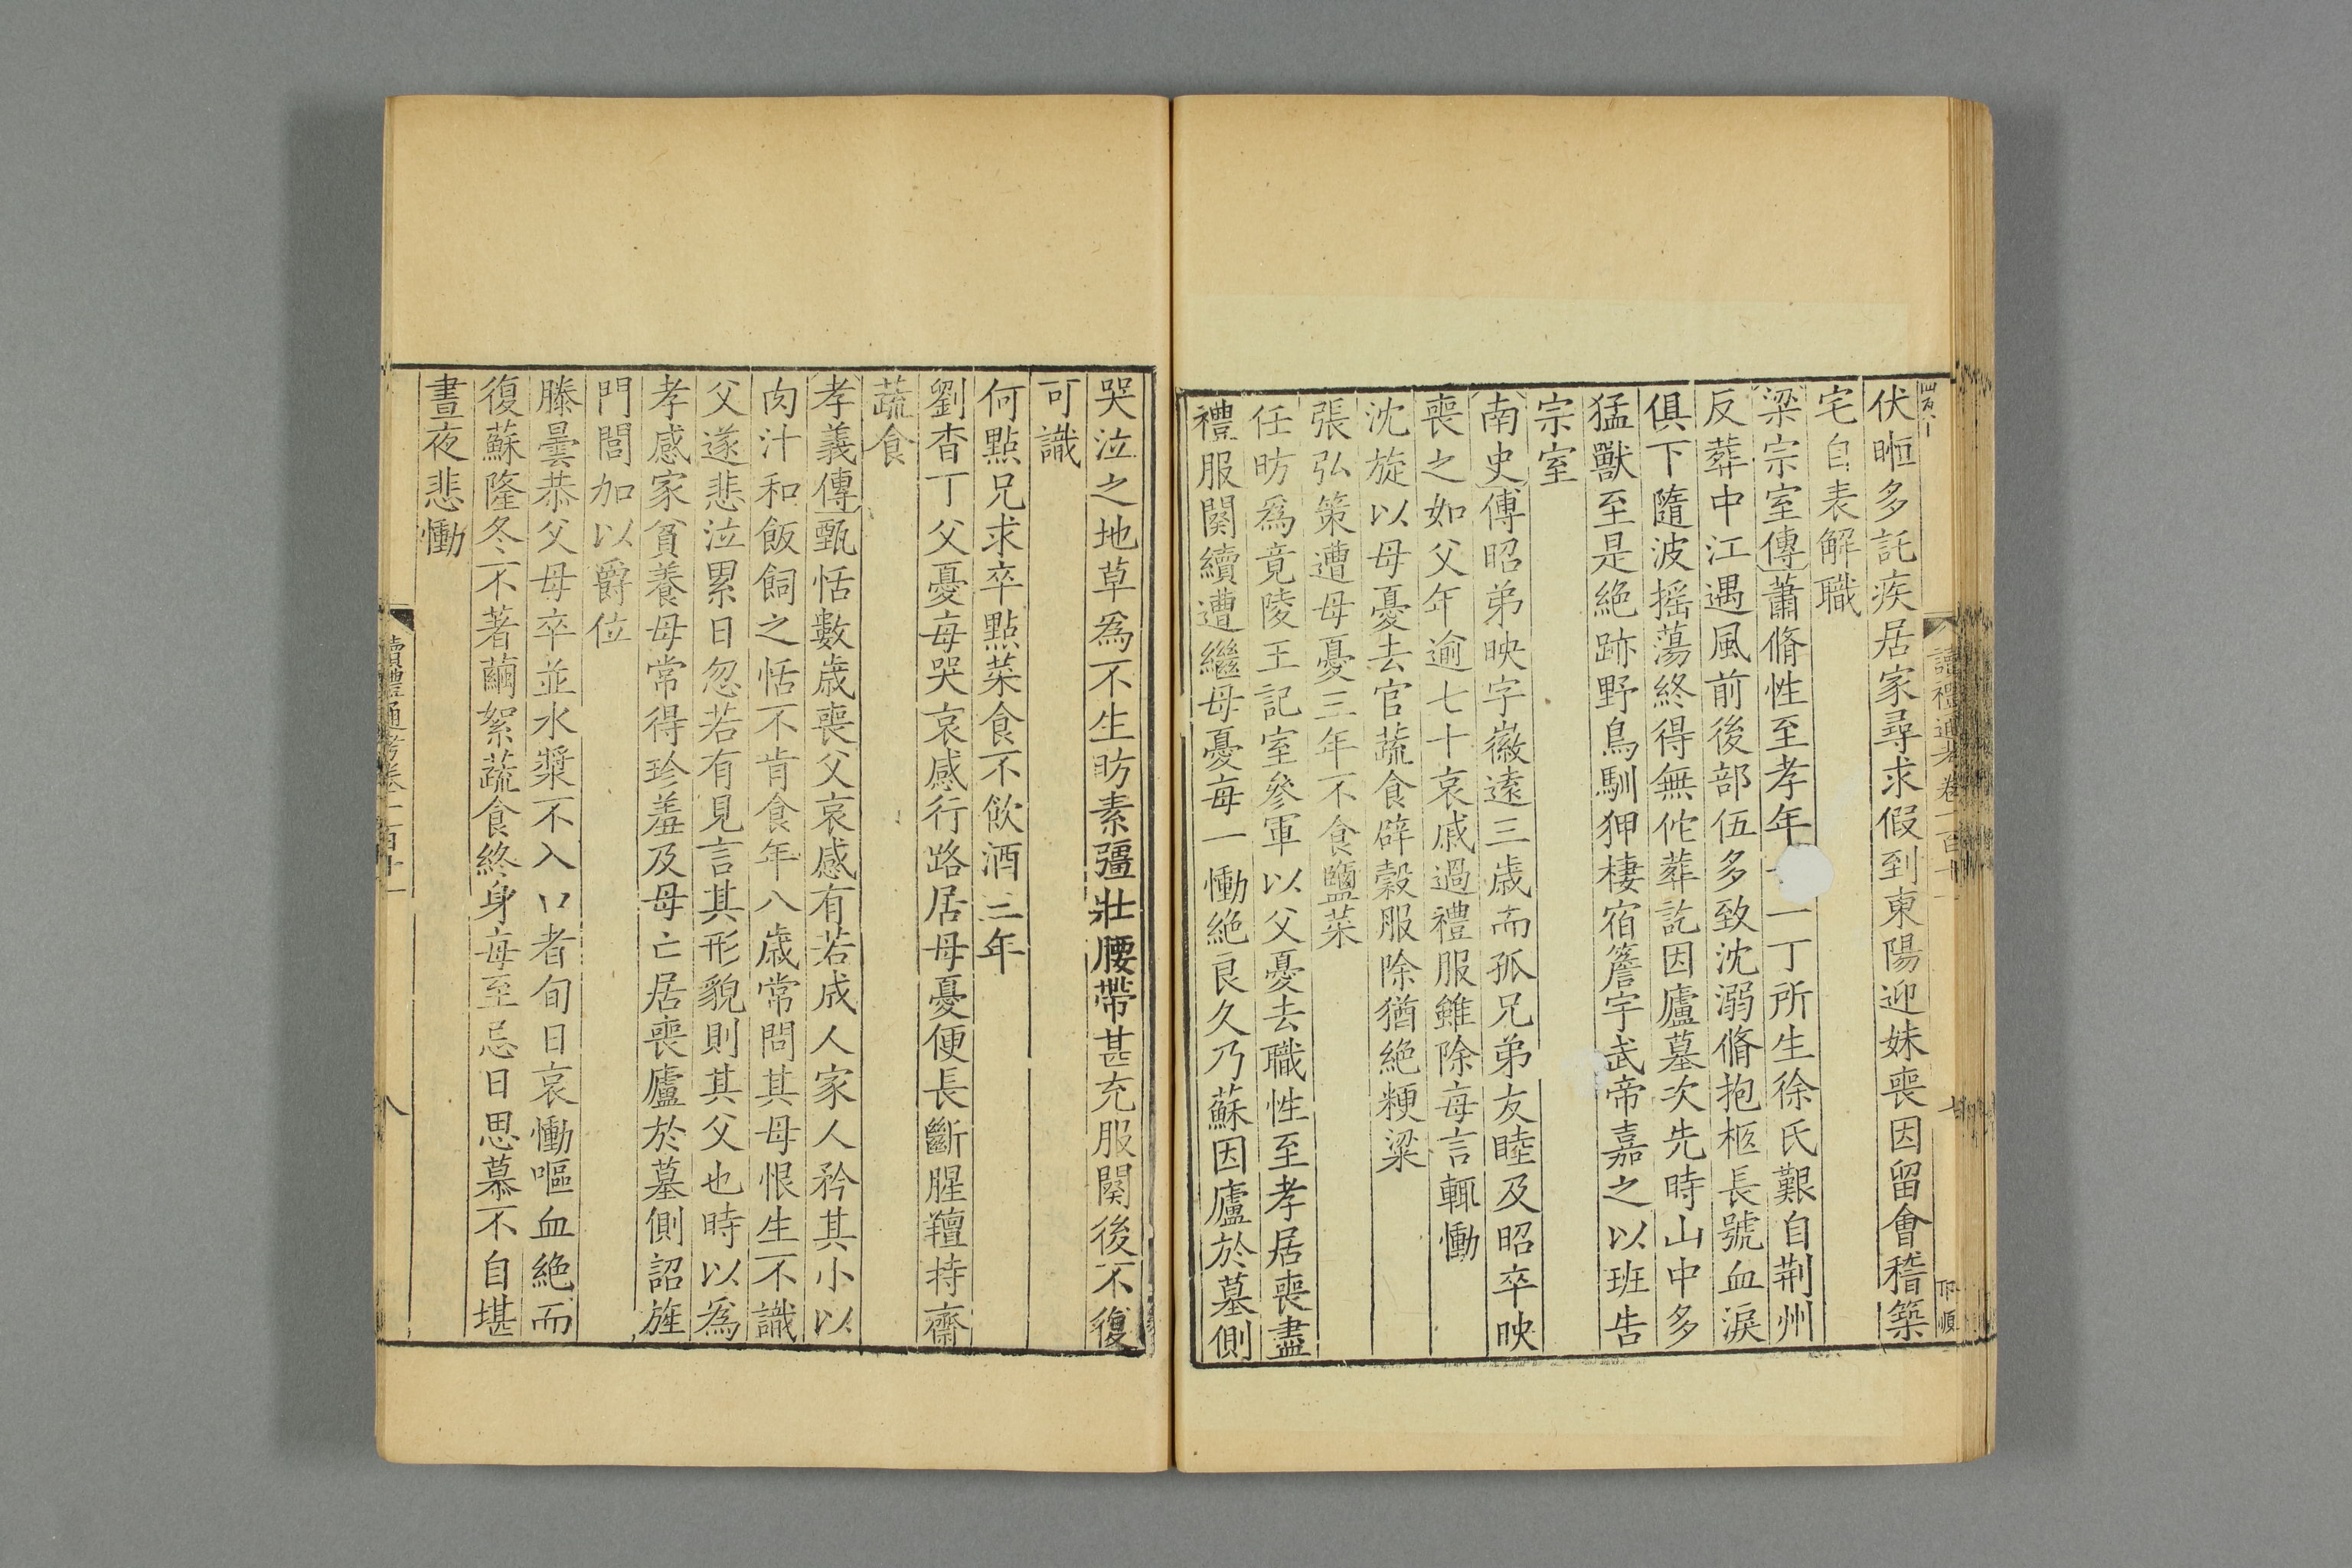 讀禮通考卷一百十一
伏暅多託疾居家尋求假到東陽迎妹喪因留會稽築
宅自表解職
梁宗室傳蕭脩性至孝年一丁所生徐氏艱自荆州
反葬中江遇風前後部伍多致沈溺脩抱柩長號血淚
俱下隨波摇蕩終得無佗葬訖因廬墓次先時山中多
猛獸至是絶跡野鳥馴狎棲宿簷宇武帝嘉之以班告
宗室
南史傅昭弟映字徽遠三歳而孤兄弟友睦及昭卒映
喪之如父年逾七十哀戚過禮服雖除每言輒慟
沈旋以母憂去官蔬食辟穀服除猶絶粳粱
張弘策遭母憂三年不食鹽菜
任昉爲竟陵王記室參軍以父憂去職性至孝居喪盡
禮服闋續遭繼母憂每一慟絶良久乃蘇因廬於墓側
哭泣之地草爲不生昉素彊壯腰帶甚充服闋後不復
可識
何點兄求卒點菜食不飲酒三年
劉杳丁父憂每哭哀感行路居母憂便長斷腥羶持齋
蔬食
孝義傳甄恬數歳喪父哀感有若成人家人矜其小以
肉汁和飯飼之恬不肯食年八歳常問其母恨生不識
父遂悲泣累日忽若有見言其形貌則其父也時以爲
孝感家貧養母常得珍羞及母亡居喪廬於墓側詔旌
門閭加以爵位
滕曇恭父母卒並水漿不入口者旬日哀慟嘔血絶而
復蘇隆冬不著繭絮蔬食終身每至忌日思慕不自堪
晝夜悲慟
讀禮通考卷一百十一
八